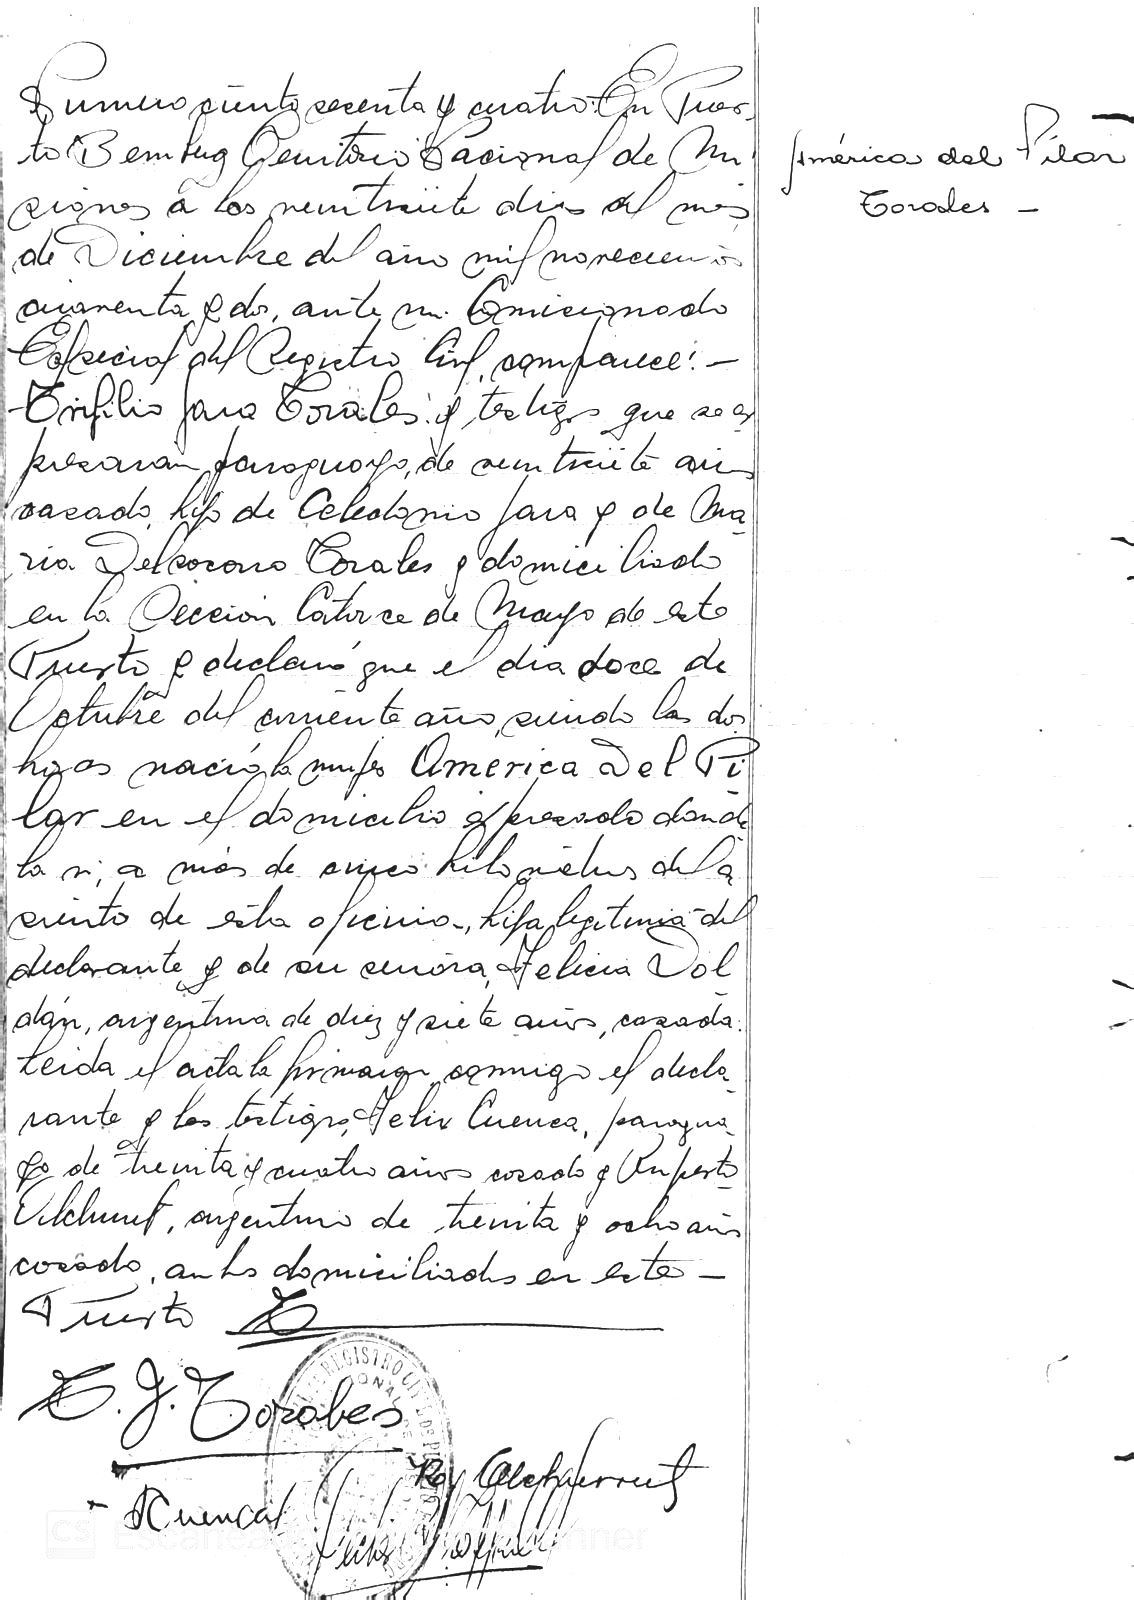 Numero ciento sesenta y cuatro: En Puer-
to Bemberg Territorio Nacional de Mi-
siones á los veintisiete dias del mes
de Diciembre del año mil novecientos
cuarenta y dos, ante mi Comisionado
Especial del Registro Civil, comparece: —
Trifilio Jara Torales y testigos que se ex-
presaran paraguayo, de veintisiete años
casado, hijo de Celedonio Jara y de Ma-
ria Delsocorro Torales y domiciliado
en la Sección Catorce de Mayo de este
Puerto y declaró que el dia doce de
Octubre del corriente año, siendo las dos
horas nació la mujer America Del Pi
lar en el domicilio expresado donde
la vi, a más de cinco kilometros del a
siento de esta oficina, hija legitima del
declarante y de su señora, Felicia Dol
dán, argentina de diez y siete años, casada.
Leida el acta la firmaron conmigo el decla-
rante y los testigos, Felix Cuenca, paragua-
yo de treinta y cuatro años casado y Ruperto
argentino de treinta y ocho años
casado, ambos domiciliados en este —
Puerto
T. J. Torales
F Cuenca
América del Pilar
Torales —
REGISTRO CIVIL
CS Escaneado con CamScanner